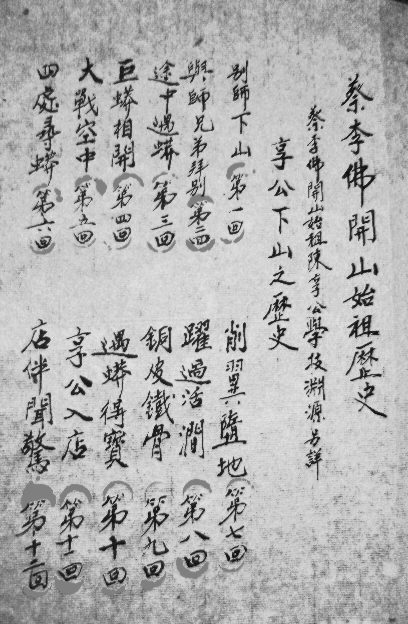 蔡李佛開山始祖歷史
蔡李佛開山始祖陳享公學技淵源另詳
享公下山之歷史
別師下山 第一回
與師兄弟拜別 第二回
途中遇蟒 第三回
巨蟒相鬥 第四回
大戰空中 第五回
四處尋蟒 第六回
削翼墮地 第七回
躍過活澗 第八回
銅皮鐵骨 第九回
遇蟒得寶 第十回
享公入店 第十一回
店伴聞驚 第十二回